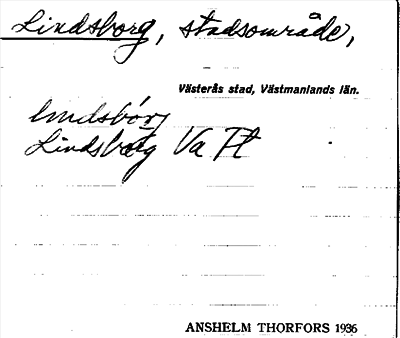 Lindsborg, stadsområde,
Västerås stad, Västmanlands län.
lindsbórj
Lindsborg Va Tl
ANSHELM THORFORS 1936